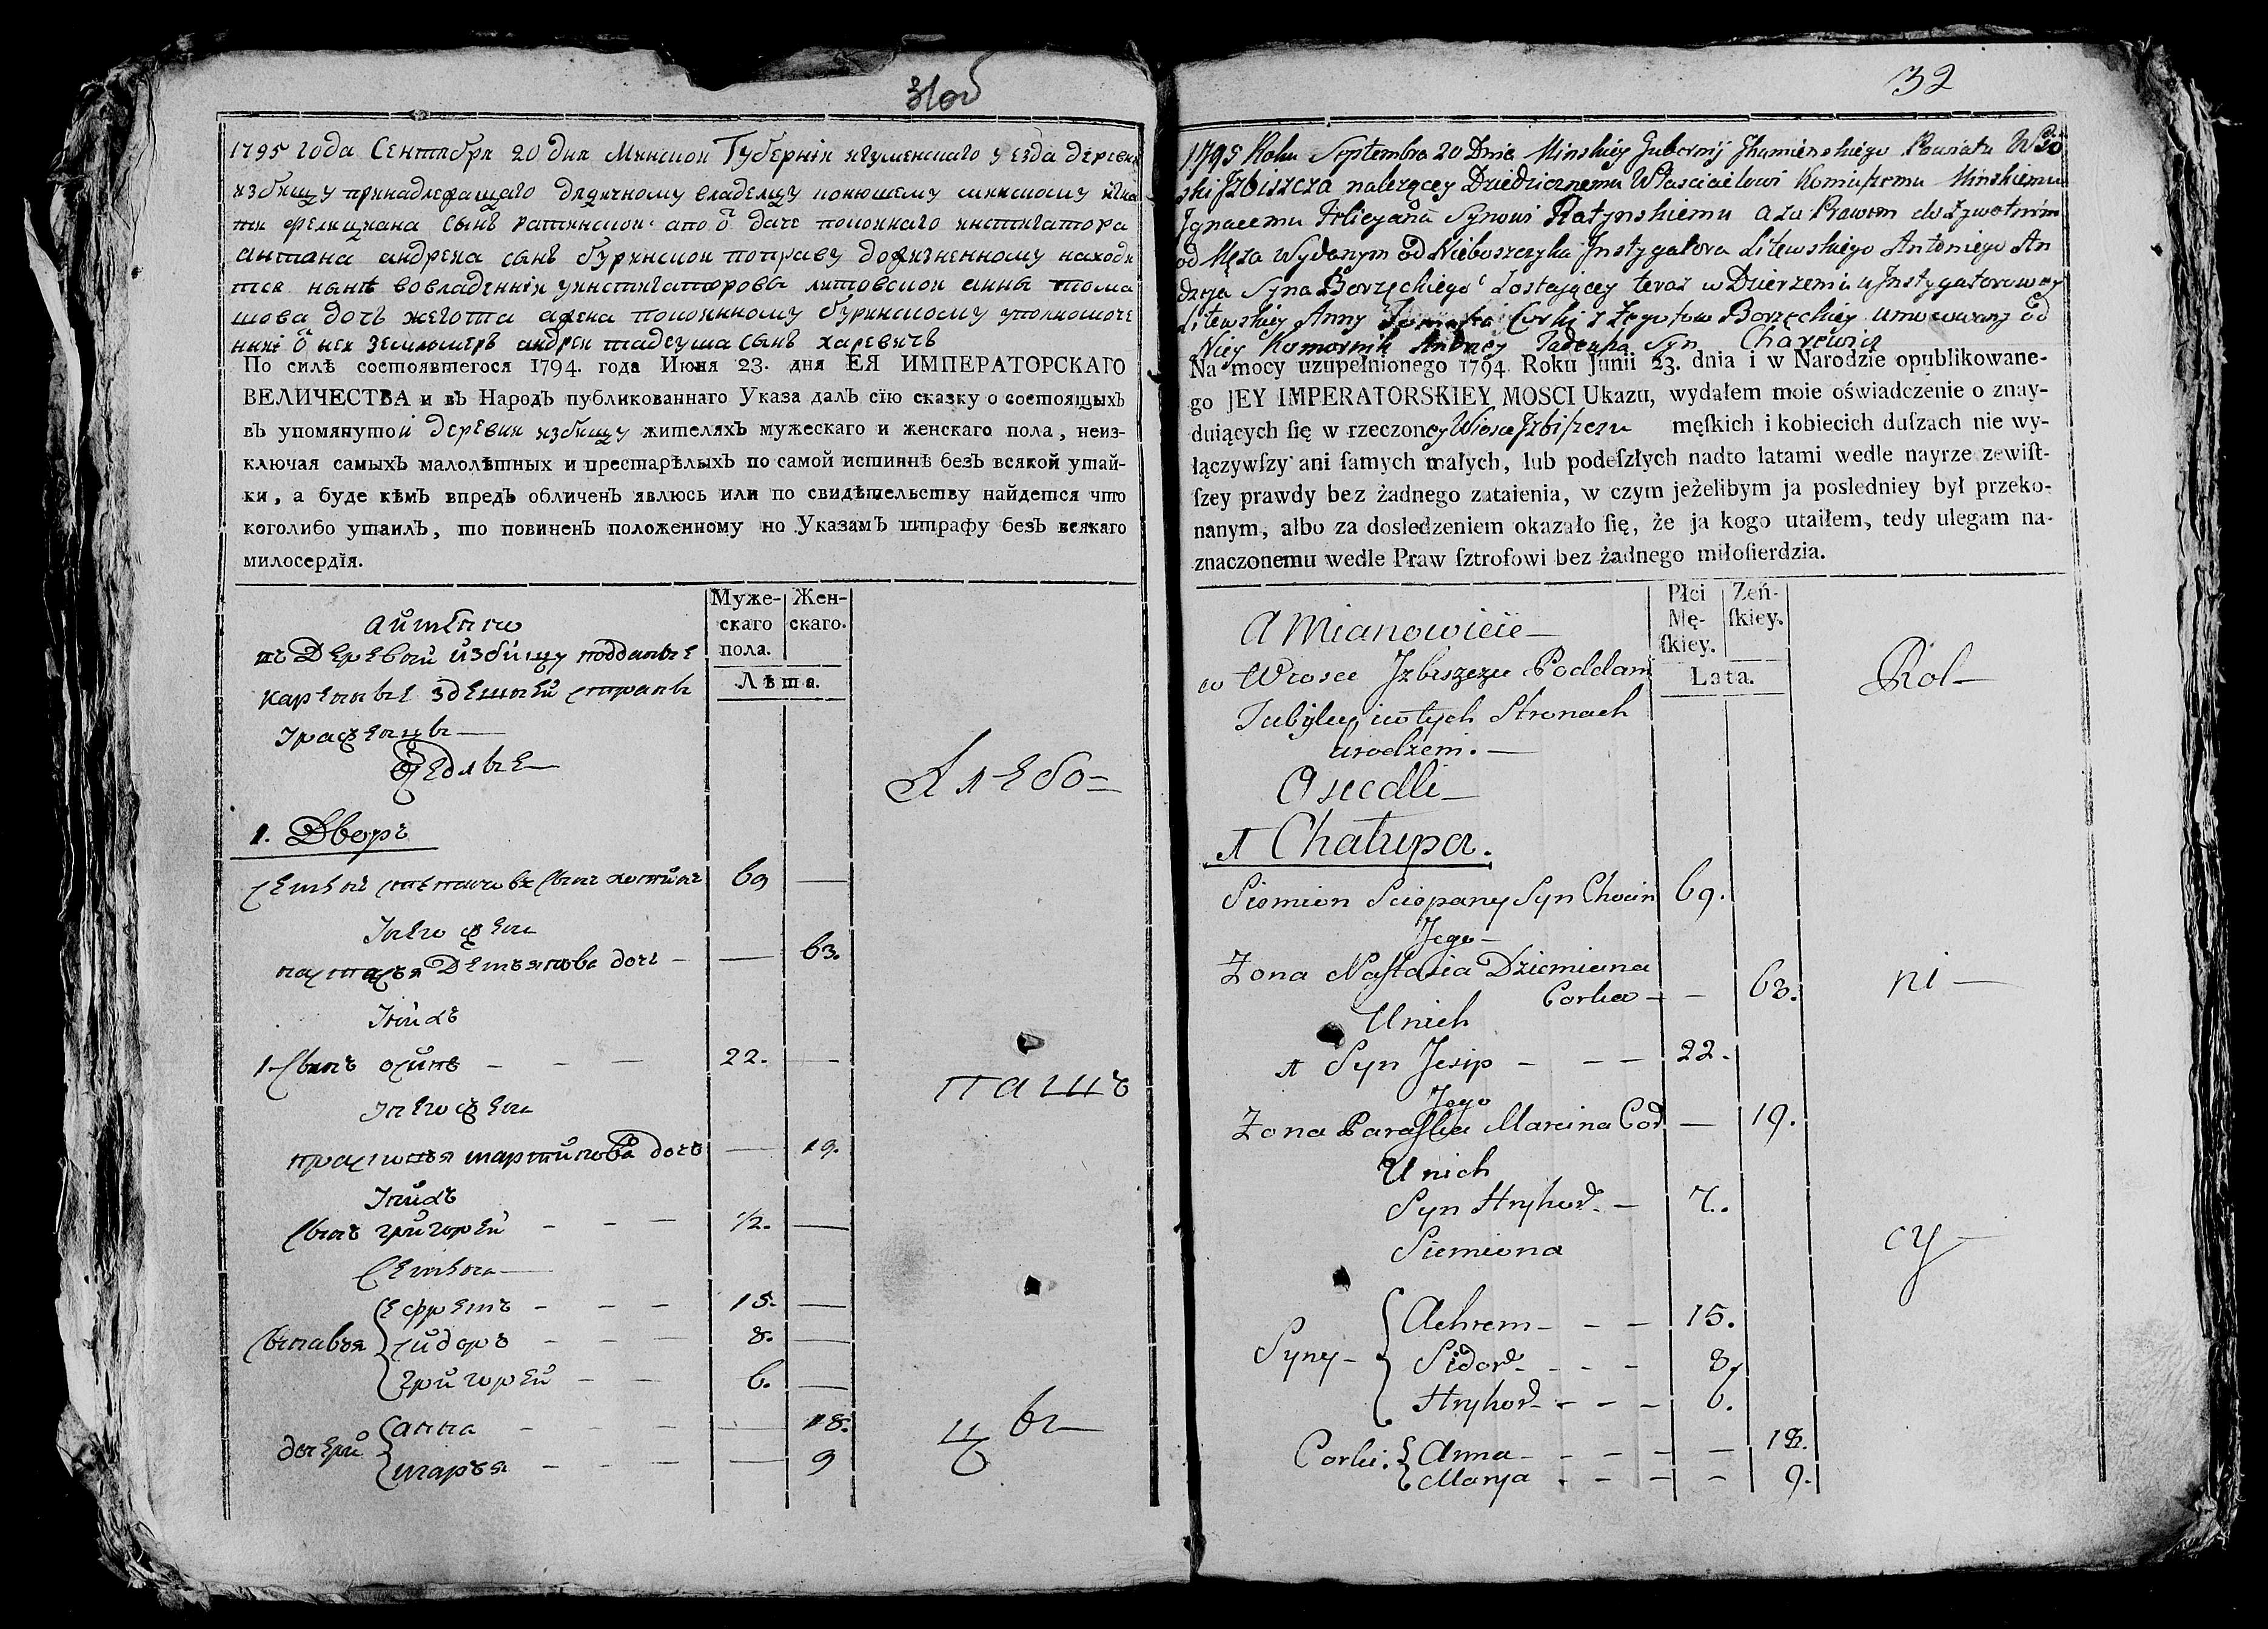 31об
1795 года Сентября 20 дня Минской Губернiи игуменскаго уезда деревни
избищу принадлежащаго дидичному владелцу конюшему минскому игна
тiю фелицiана сынъ ратинской
антана андрея сынъ находи
тся нынѣ вовладѣнiи литовской анны тома
шова дочь жегота
нiя ѿ нея землемеръ андрей тадеуша сынъ харевичъ
По силѣ состоявшегося 1794. года Июня 23. дня ЕЯ ИМПЕРАТОРСКАГО
ВЕЛИЧЕСТВА и въ Народъ публикованнаго Указа далъ сїю сказку о состоящыхъ
въ упомянутой деревни избищу жителяхъ мужескаго и женскаго пола, неиз-
ключая самыхъ малолѣтныхъ и престарѣлыхъ по самой истиннѣ безъ всякой утай-
ки, а буде кѣмъ впредъ обличенъ явлюсь или по свидѣтельству найдется что
коголибо утаилъ, то повиненъ положенному по Указамъ штрафу безъ всякаго
милосердїя.
Муже-
скаго
пола.
Жен-
скаго.
Лѣта.
а именно
въ Деревни избищу подданые
кареные здешней страны
урожденцы
Аседлые
Хлебо=
1. Дворъ
Семенъ степановъ сынъ 69 —
У него жена
настасья Демьянова дочь — — 63.
У нихъ
1. Сынъ осипъ — — — 22. —
пашъ
У него жена
прасковья мартинова дочь — 19.
У нихъ
Сынъ григорей — — — 1/2. —
Семена —
Сыновья
ефремъ — — — 15. —
сидоръ — — — 8. —
григорей — — 6. —
дочери
анна — — — — 18.
марья — — — — 9
цы
32
1795 Roku Septembra 20 Dnia Minskiey Gubernij Jhumienskiego Powiatu Wło
ski Jzbiszcza nalezącey Dziedzicznemu Włascicielowi Koniuszemu Minskiemu
Jgnacemu Felicyana Synowi Ratynskiemu a za Prawem dożywotnim
od Męża Wydanym od Nieboszczyka Jnstygatora Litewskiego Antoniego An
dzeja Syna Borzęckiego Zostającey teraz w Dzierzeniu Jnstygatorowey
Litewskiey Anny Tomasza Corki z Żegotow Borzęckiey umocowany od
Niey Komornik Andrzey Tadeusza Syn Charewicz
Na mocy uzupełnionego 1794 Roku Junii 23. dnia i w Narodzie opublikowane-
go JEY IMPERATORSKIEY MOSCI Ukazu, wydałem moie oświadczenie o znay-
duiących ſię w rzeczoney Wiosce Jzbiſzczu męſkich i kobiecich duſzach nie wy-
łączywſzy ani ſamych małych, lub podeſzłych nadto latami wedle nayrze zewiſt-
ſzey prawdy bez żadnego zataienia, w czym jeżelibym ja posledniey był przeko-
nanym, albo za dosledzeniem okazało ſię, że ja kogo utaiłem, tedy ulegam na-
znaczonemu wedle Praw ſztrofowi bez żadnego miłoſierdzia.
Płci
Mę-
ſkiey.
Zeń-
ſkiey.
Lata.
A Mianowicie —
w Wiosce Jzbiszczu Poddani
Tubylcy i w tych Stronach
urodzeni. —
Osiedli —
Rol —
1 Chałupa.
Siemion Sciepany Syn 69.
Jego —
Żona Naſtazia Dziemiana
Corka — — 63.
ni —
Unich
1 Syn Jesip — — — 22.
Jego
Żona Paraſka Marcina Cor — 19.
Unich
Syn Hryhor. —
Siemiona
cy —
Syny —
Achrem — — — 15.
Sidor — — — 8.
Hryhor — — — 6.
Corki.
Anna — — — — — 18.
Marya — — — — 9.